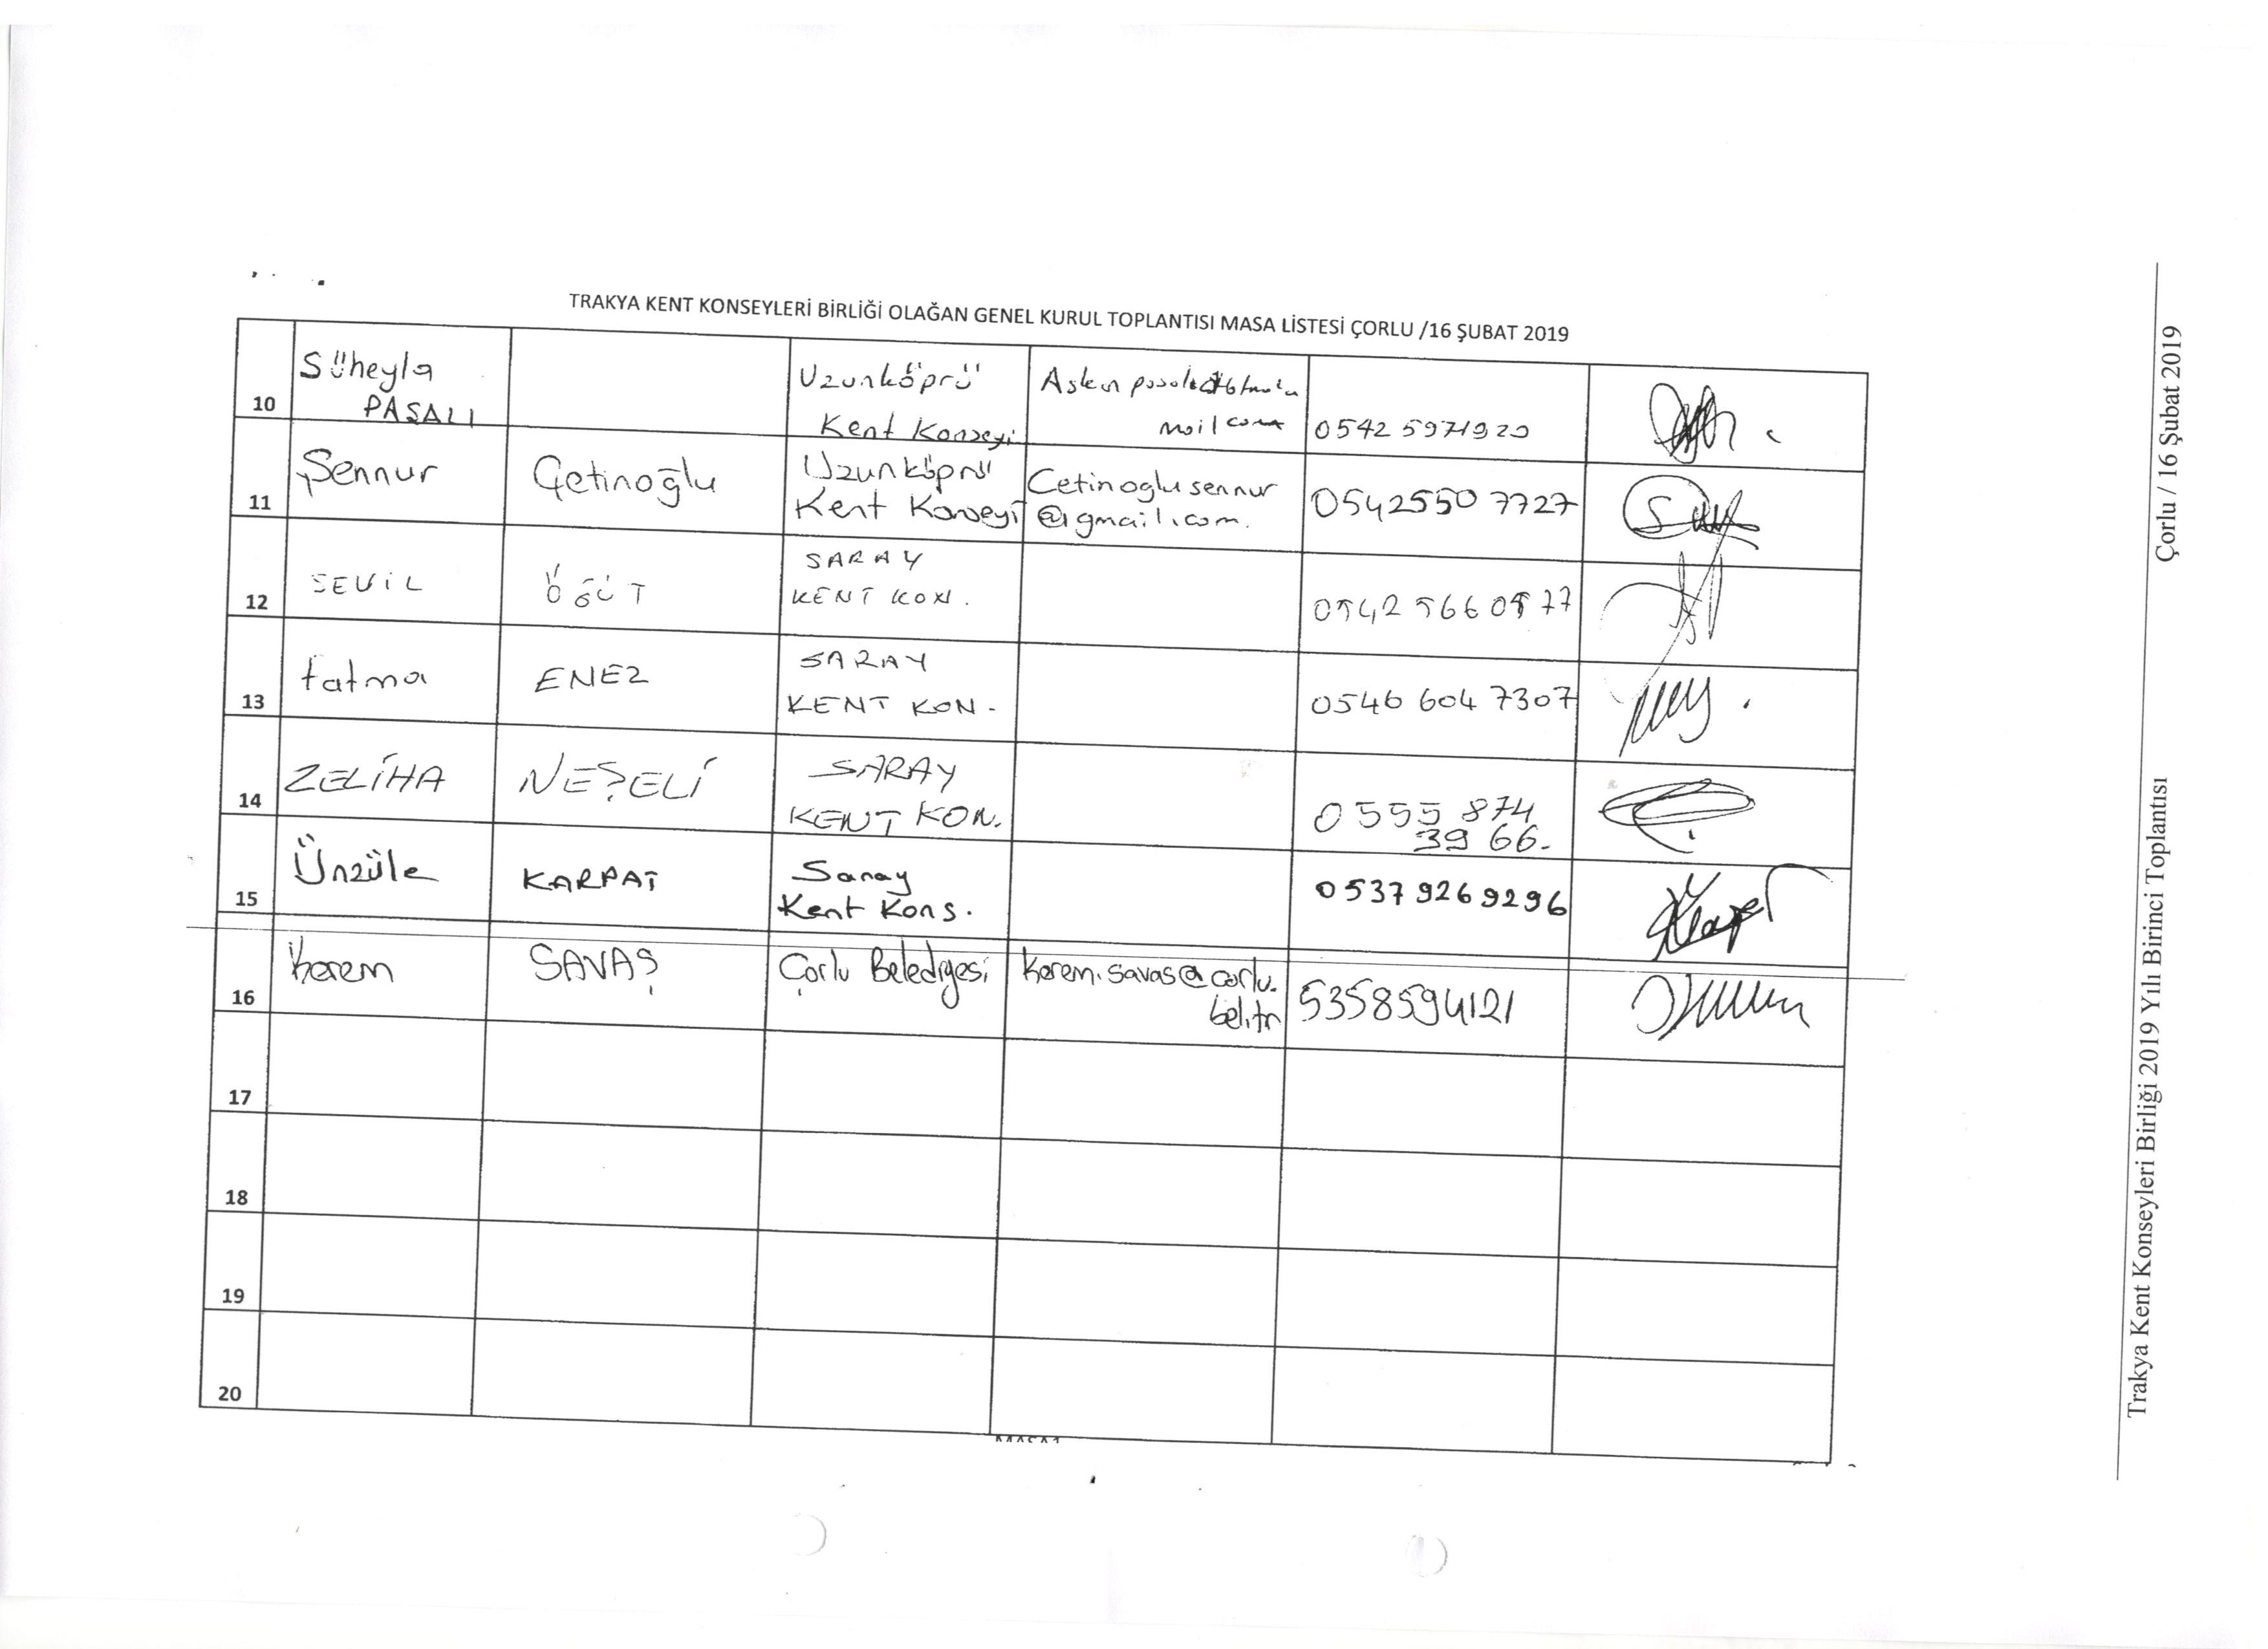 TRAKYA KENT KONSEYLERİ BİRLİĞİ OLAĞAN GENEL KURUL TOPLANTISI MASA LİSTESİ ÇORLU /16 ŞUBAT 2019
10 Süheyla PAŞALI Uzunköprü Kent Konseyi mail com 0542 5971920
11 Şennur Çetinoğlu Uzunköprü Kent Konseyi Cetinoglusennur @gmail.com. 0542550 7727
12 SEVİL ÖĞÜT SARAY KENT KON. 0542 566 0577
13 Fatma ENEZ SARAY KENT KON. 0546 604 7307
14 ZELİHA NEŞELİ SARAY KENT KON. 0555 874 39 66.
15 Ünzüle KARPAT Saray Kent Kons. 0537 926 9296
16 Kerem SAVAŞ Çorlu Belediyesi Kerem.savas@corlu. bel.tr 5358594121
17
18
19
20
Trakya Kent Konseyleri Birliği 2019 Yılı Birinci Toplantısı Çorlu / 16 Şubat 2019